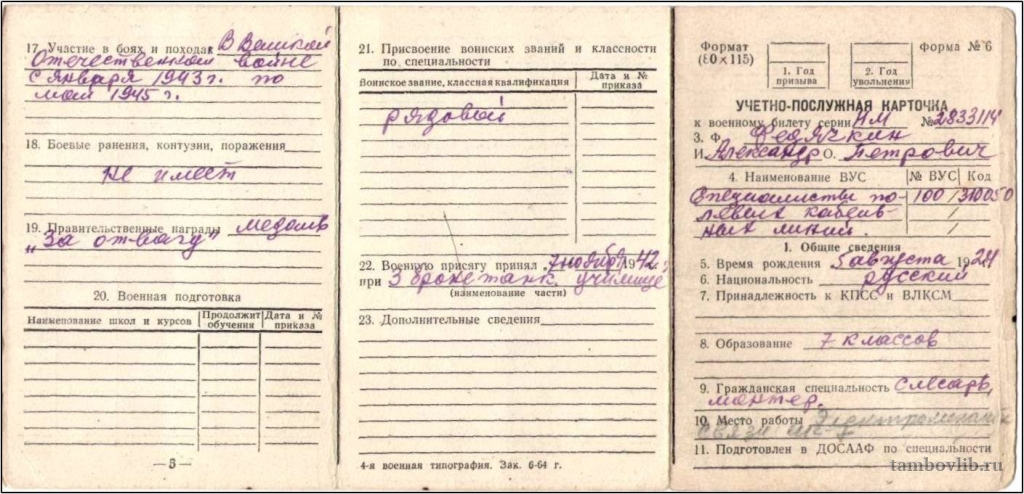 17. Участие в боях и походах В Великой
Отечественной войне
с января 1943 г. по
май 1945 г.
18. Боевые ранения, контузии, поражения
не имеет
19. Правительственные награды медаль
„За отвагу"
20. Военная подготовка
Наименование школ и курсов
Продолжит обучения
Дата и № приказа
— 3 —
21. Присвоение воинских званий и классности
по специальности
Воинское звание, классная квалификация
Дата и № приказа
рядовой
22. Военную присягу принял 7 ноября 1942 г.
при 3 бронетанк. училище
(наименование части)
23. Дополнительные сведения
4-я военная типография. Зак. 6-64 г.
Формат
(80×115)
1. Год
призыва
2. Год
увольнения
Форма № 6
УЧЕТНО-ПОСЛУЖНАЯ КАРТОЧКА
к военному билету серии НМ №2833114
3. Ф. Федячкин
И. Александр О. Петрович
4. Наименование ВУС
№ ВУС
Код
Специалисты по-
левых кабель-
ных линий.
100
310050
1. Общие сведения
5. Время рождения 5 августа 1924
6. Национальность русский
7. Принадлежность к КПСС и ВЛКСМ
8. Образование 7 классов
9. Гражданская специальность Слесарь,
монтер.
10. Место работы Электромеханик
связи
11. Подготовлен в ДОСААФ по специальности
tambovlib.ru